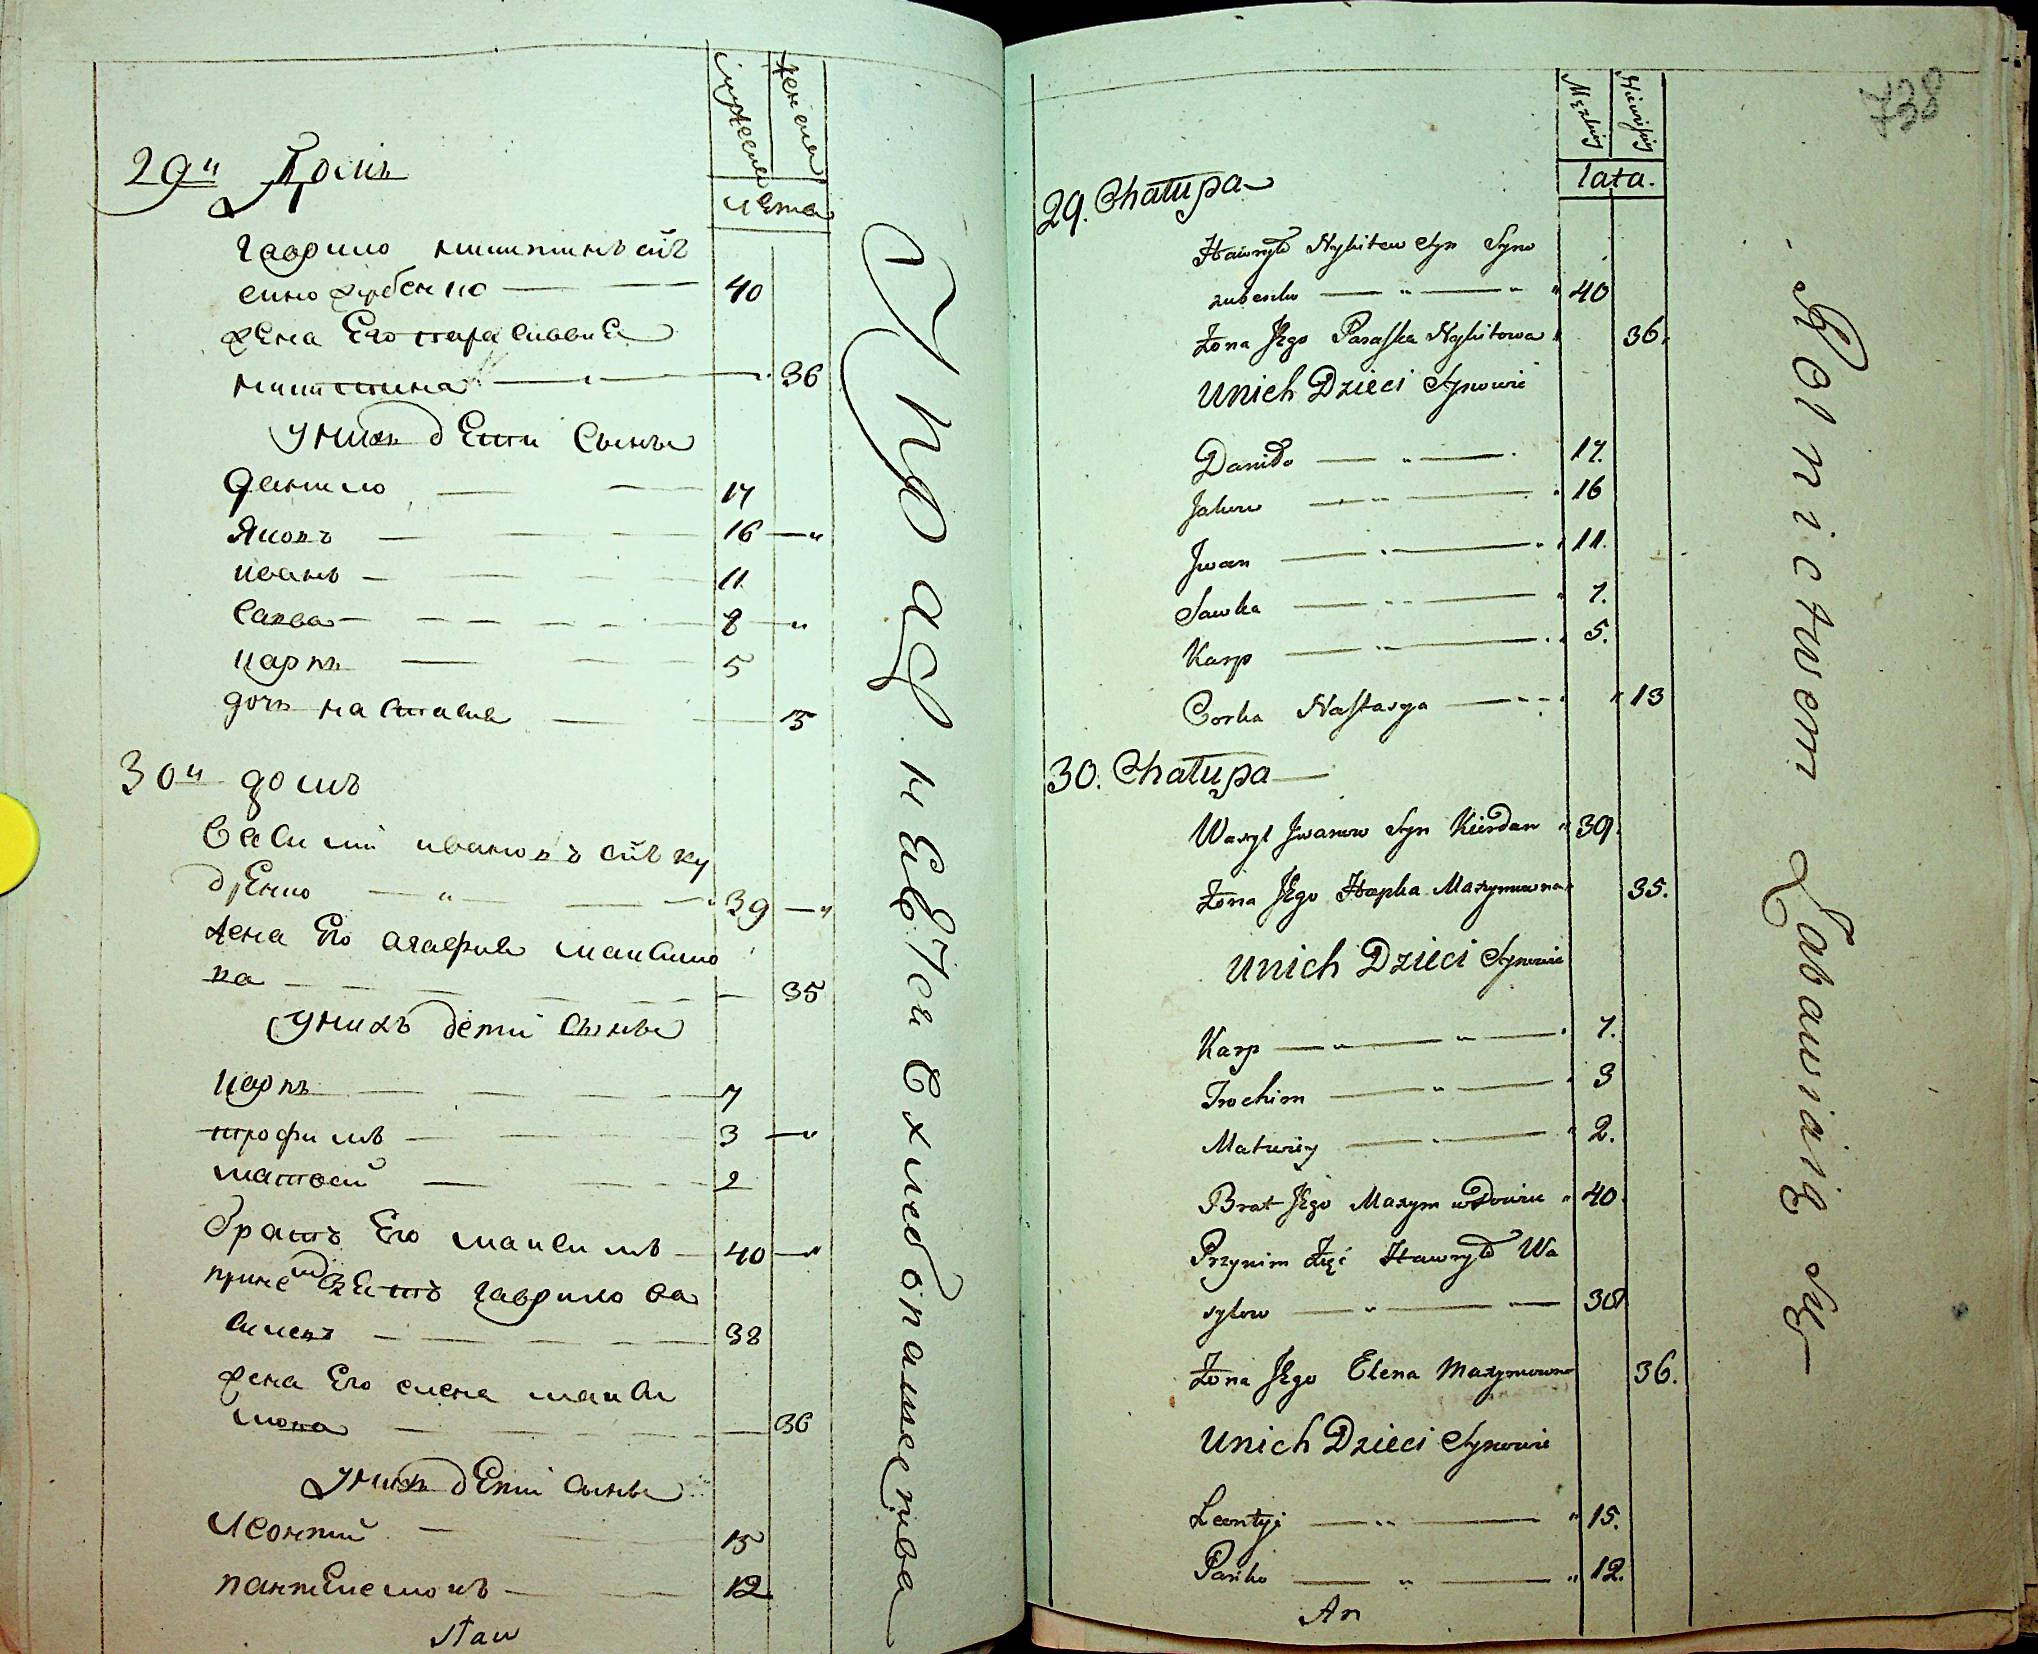 мужеска
женска
лета
29й Домъ
Гаврило Никитинъ снъ
Синозубенко 40
жена Его Парасковия
Никитина 36
у нихъ дЕти Сыны
Данило 17
Яковъ 16
иванъ 11
Савва 8
карпъ 5
дочь настасия 13
30й домъ
Василий ивановъ снъ ку
дрЕнко 39
жена Его агафия макимо
ва 35
у нихъ дети Сыны
карпъ 7
трофимъ 3
матвей 2
братъ Его макимъ 40
зЕть гаврило ва
силевъ 38
жена Его елена макси
мова 36
у нихъ дЕти сыны
леонтий 15
пантЕлемонъ 12
Упражняется в хлебопашестве
738
Męzkiej
Niewiesciej
lata.
29. Chałupa
Hawryło Nykitow Syn Syno
zubenko 40
Żona Jego Paraska Nykitowa 36.
Unich Dzieci Synowie
Daniło 17.
Jakow 16
Jwan 11.
Sawka 7.
Karp 5.
Corka Nastasya 13
30. Chałupa
Wasyl Jwanow Syn Kudran 39.
Żona Jego Hapka Maxymowna 35.
Unich Dzieci Synowie
Karp 7.
Trochim 3
Matwiey 2.
Brat Jego Maxym wdowiec 40.
Przyim Zięć Hawryło Wa
sylow 38
Żona Jego Elena Maxymowna 36.
Unich Dzieci Synowie
Leontyi 15.
Pańko 12.
An
Rolnictwem Zabawiaią się